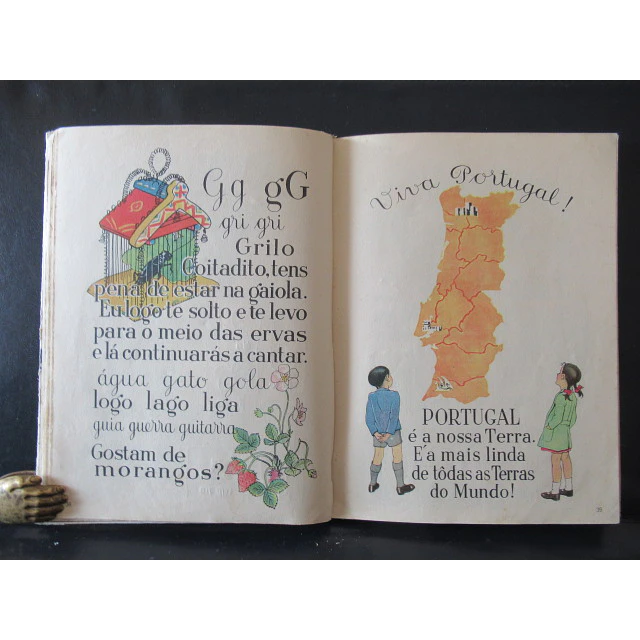 Gg gG
gri gri
Grilo
Coitadito, tens
pena de estar na gaiola.
Eu logo te solto e te levo
para o meio das ervas
e lá continuarás a cantar.
água gato gola
logo lago liga
guia guerra guitarra
Gostam de
morangos?
Viva Portugal!
PORTUGAL
é a nossa Terra.
E' a mais linda
de tôdas as Terras
do Mundo!